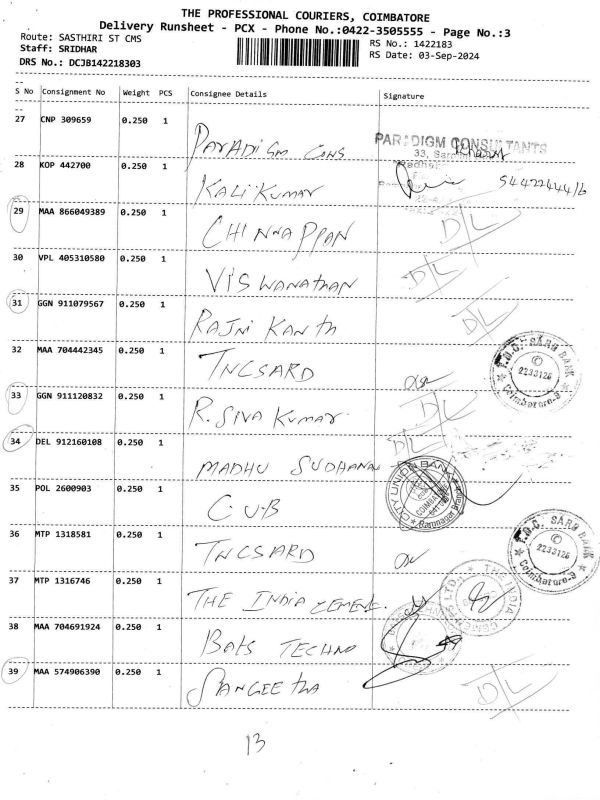 THE PROFESSIONAL COURIERS, COIMBATORE
Delivery Runsheet - PCX - Phone No.:0422-3505555 - Page No.:3
Route: SASTHIRI ST CMS RS No.: 1422183
Staff: SRIDHAR RS Date: 03-Sep-2024
DRS No.: DCJB142218303
S No Consignment No Weight PCS Consignee Details Signature
27 CNP 309659 0.250 1 PARADIGM CONS PARADIGM CONSULTANTS
33,
28 KOP 442700 0.250 1 KALIKUMAR
29 MAA 866049389 0.250 1 CHINNAPPAN D/L
30 VPL 405310580 0.250 1 VISWANATHAN D/L
31 GGN 911079567 0.250 1 RAJNI KANTH D/L
32 MAA 704442345 0.250 1 TNCSARD
2233126
Coimbatore-9
33 GGN 911120832 0.250 1 R. SIVA KUMAR D/L
34 DEL 912160108 0.250 1 MADHU SUDHANAN D/L
35 POL 2600903 0.250 1 C.U.B
CITY UNION BANK
COIMBATORE
Ramnagar Branch
36 MTP 1318581 0.250 1 TNCSARD
2233126
Coimbatore-9
37 MTP 1316746 0.250 1 THE INDIA CEMENE.
THE INDIA CEMENTS LTD.
38 MAA 704691924 0.250 1 BATS TECHNO
39 MAA 574906390 0.250 1 SANGEETHA D/L
13